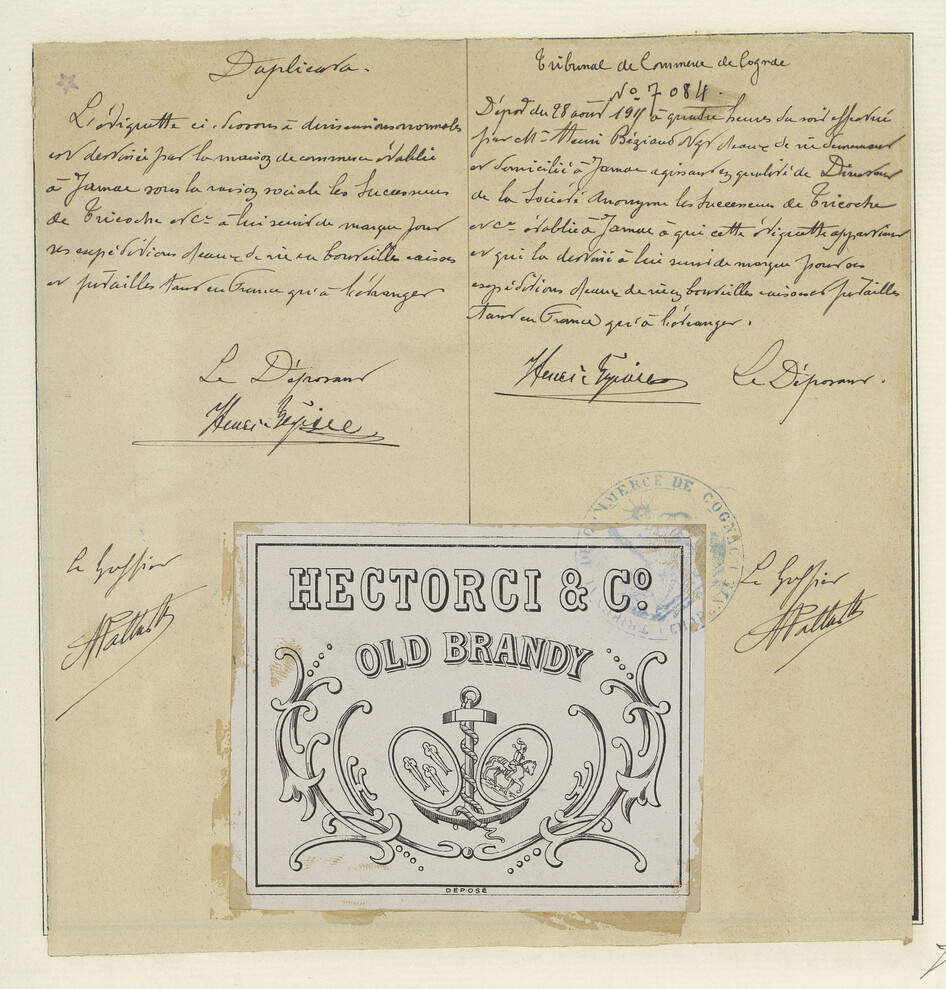 Duplicata.
L'étiquette ci-dessous à dimensions normales
est destinée par la maison de commerce établie
à Jarnac sous la raison sociale les Successeurs
de Tricoche et Cie à lui servir de marque pour
ses expéditions d'eaux de vie en bouteilles caisses
et futailles tant en France qu'à l'étranger
Le Déposant
Henri
Le Greffier
Tribunal de Commerce de Cognac
No 7084.
Dépôt du 28 août 1911 à quatre heures du soir effectué
par Mr Henri Négt d'eaux de vie demeurant
et domicilié à Jarnac agissant en qualité de Directeur
de la Société Anonyme les Successeurs de Tricoche
et Cie établie à Jarnac à qui cette étiquette appartient
et qui la destine à lui servir de marque pour ses
expéditions d'eaux de vie en bouteilles caisses et futailles
tant en France qu'à l'étranger.
Henri
Le Déposant.
Le Greffier
TRIBUNAL DE COMMERCE DE COGNAC (CHARENTE)
HECTORCI & Co.
OLD BRANDY
DÉPOSÉ